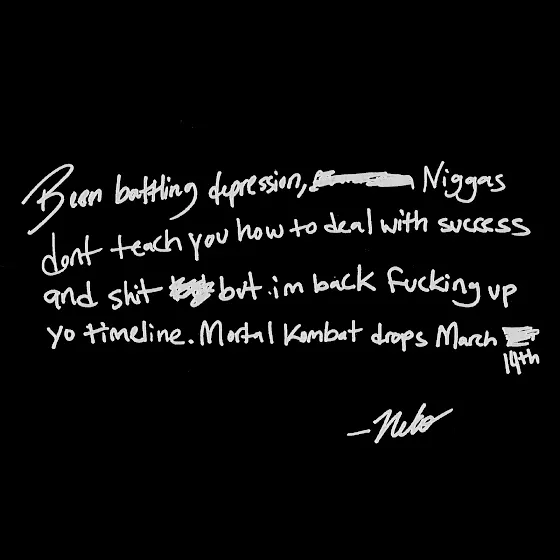 Been battling depression, Niggas
dont teach you how to deal with success
and shit but im back fucking up
yo timeline. Mortal Kombat drops March
14th
- Neko